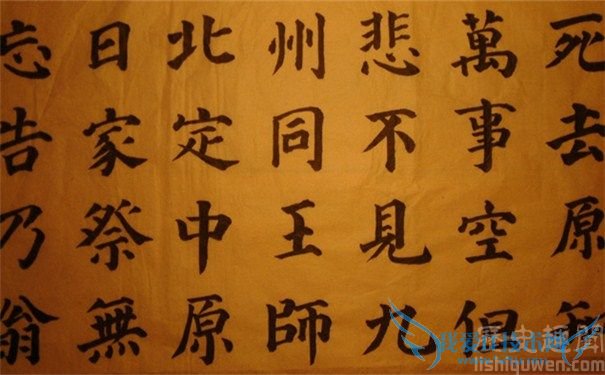 死去原
萬事空但
悲不見九
州同王師
北定中原
日家祭無
忘告乃翁
歷史趣聞
lishiquwen.com